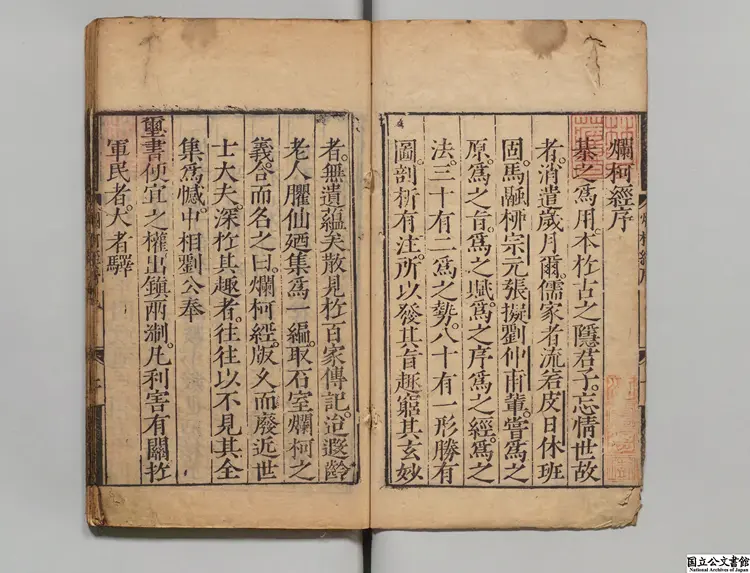 爛柯經序
棊之爲用。本扵古之隱君子。忘情世故
者。消遣歲月爾。儒家者流。若皮日休班
固。馬融。栁宗元。張擬。劉仲甫輩。嘗爲之
原。爲之旨。爲之賦。爲之序。爲之經。爲之
法。三十有二。爲之勢。八十有一。形勝有
圖。剖析有注。所以發其旨趣。窮其玄妙
者。無遺蘊矣。散見扵百家傳記。洎遐齡
老人臞仙廼集爲一編。取石室爛柯之
義。合而名之曰。爛柯經。版久而廢。近世
士大夫。深扵其趣者。往往以不見其全
集爲憾。中相劉公奉
璽書便宜之權出鎮兩淛。凡利害有關扵
軍民者。大者驛
国立公文書館
National Archives of Japan